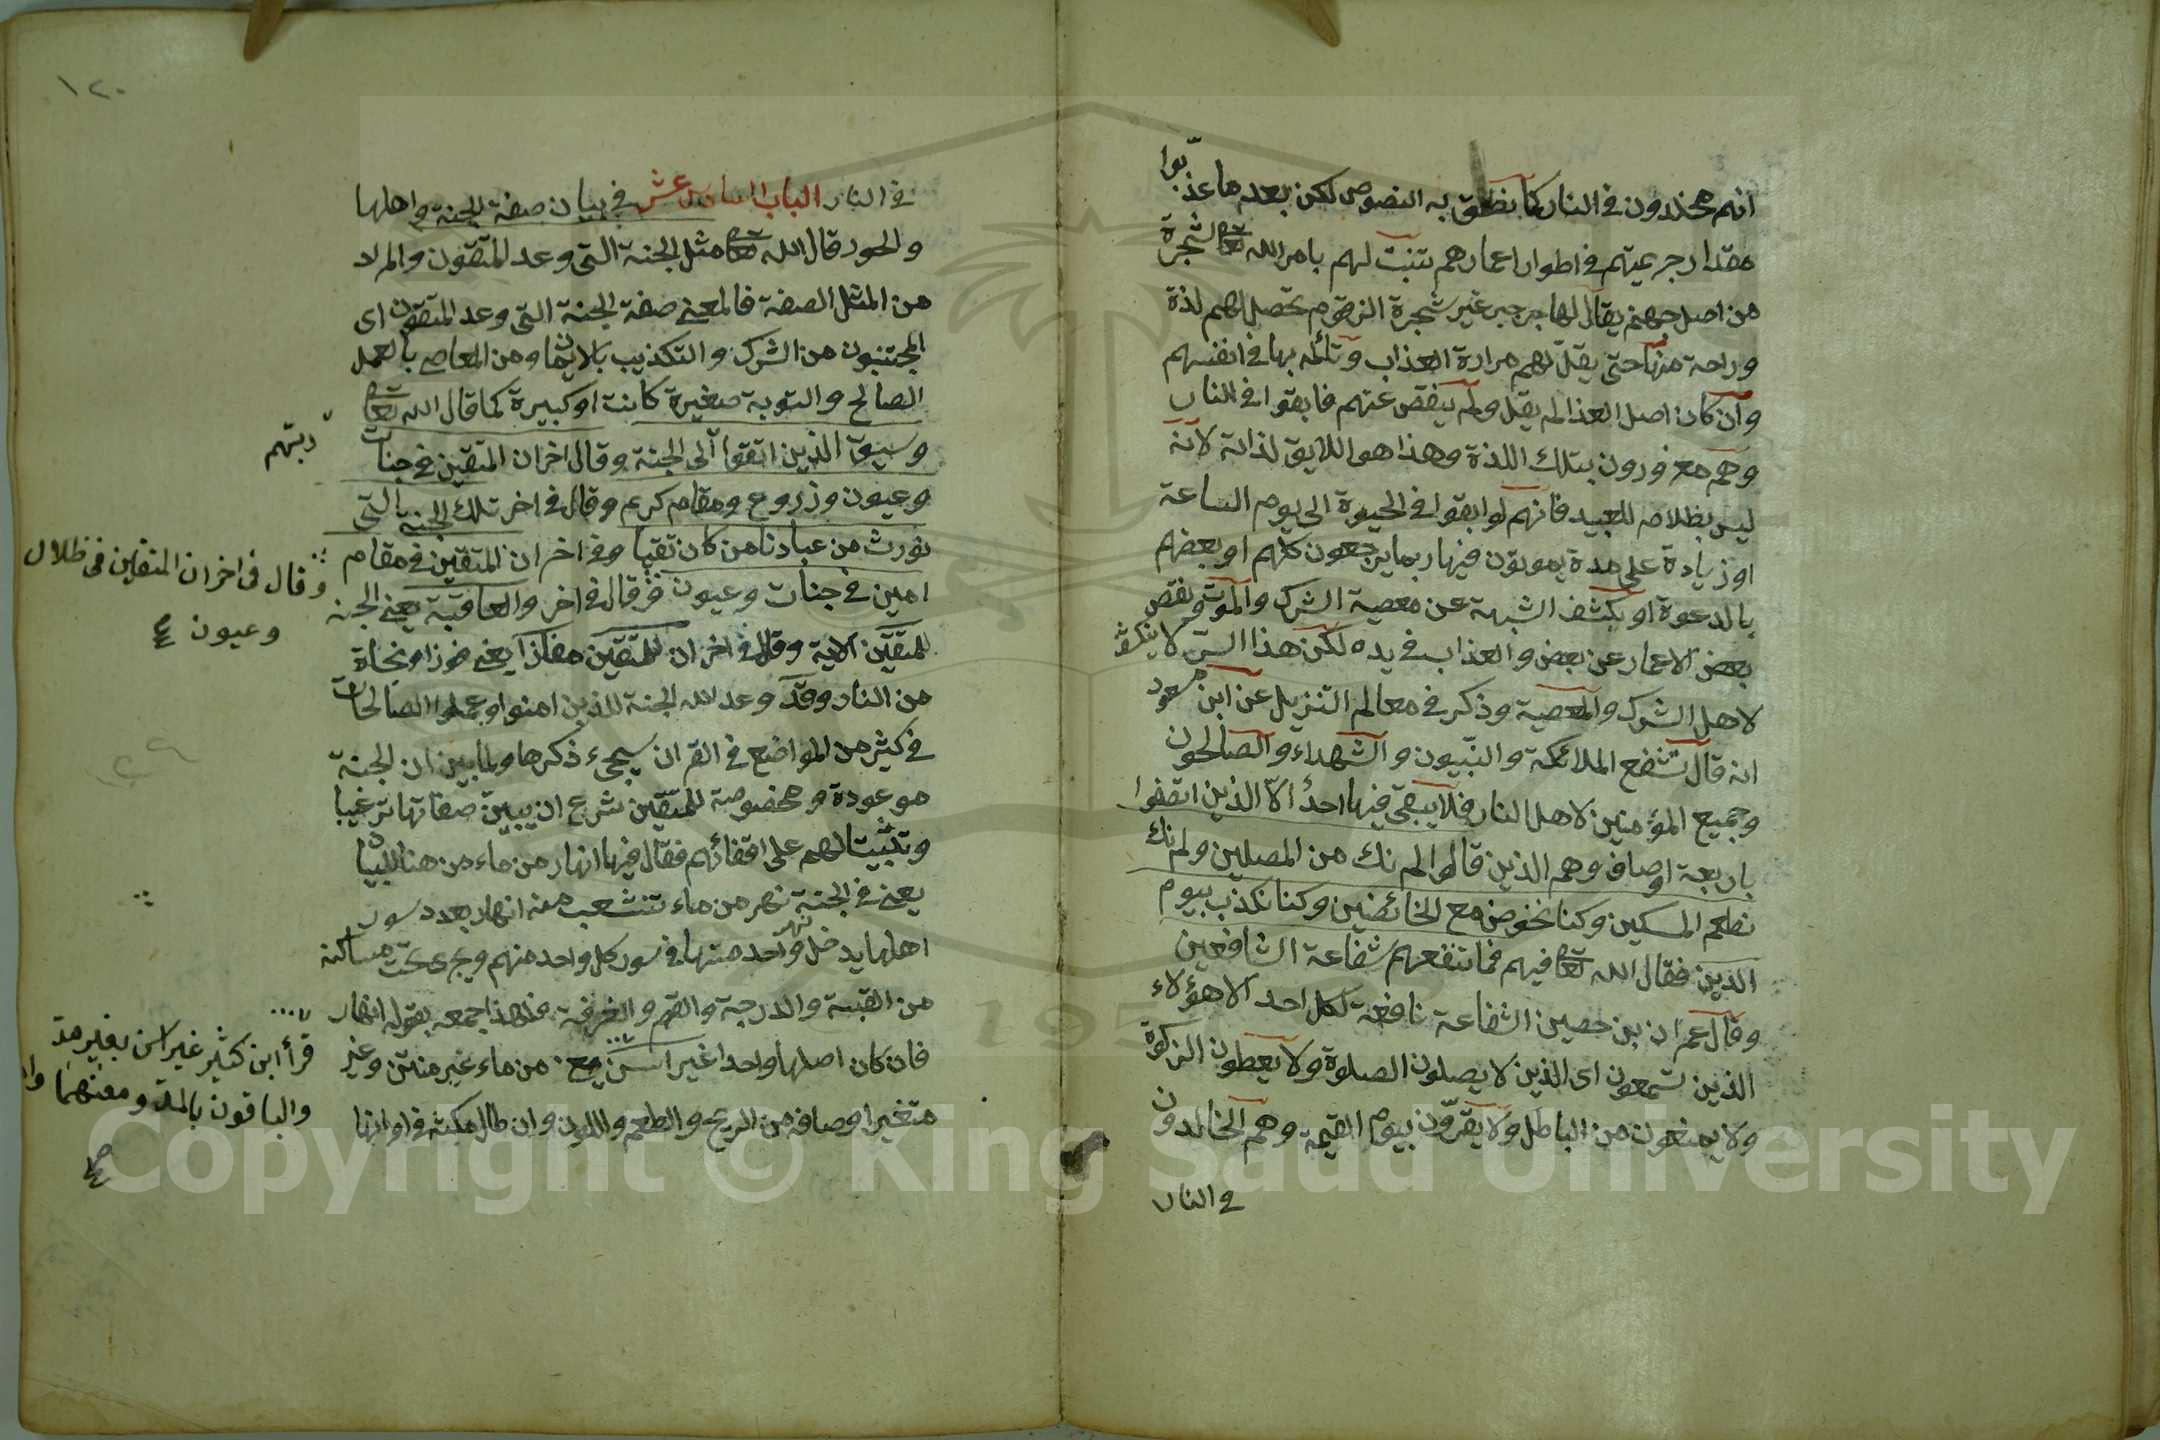 انهم مخلدون في النار كما نطق به النصوص لكن بعد ما عذبوا
مقدار جريمتهم في اطوار اعمارهم تنبت لهم بامر الله تعالى شجرة
من اصل جهنم يقال لها جرجير غير شجرة الزقوم تحصل لهم لذة
وراحة منها حتى يقل لهم مرارة العذاب وتألمه بها في انفسهم
وان كان اصل العذاب لم يقل ولم ينقص عنهم فابقوا في النار
وهم معذورون بتلك اللذة وهذا هو اللايق لذاته لانه
ليس بظلام للعبيد فانهم لو ابقوا في الحيوة الى يوم الساعة
او زيادة على مدة يموتون فيها ربما يرجعون كلهم او بعضهم
بالدعوة او بكشف الشبهة عن معصية الشرك والموت ونقص
بعض الاعمار عن بعض والعذاب في يده لكن هذا السر لا ينكشف
لاهل الشرك والمعصية وذكر في معالم التنزيل عن ابن مسعود
انه قال تشفع الملائكة والنبيون والشهداء والصالحون
وجميع المؤمنين لاهل النار فلا يبقى فيها احد الا الذين اتصفوا
باربعة اوصاف وهم الذين قالوا لم نك من المصلين ولم نك
نطعم المسكين وكنا نخوض مع الخائضين وكنا نكذب بيوم
الدين فقال الله تعالى فيهم فما تنفعهم شفاعة الشافعين
وقال عمران بن حصين الشفاعة نافعة لكل احد الا هؤلاء
الذين تسمعون اى الذين لا يصلون الصلوة ولا يعطون الزكوة
ولا يمنعون من الباطل ولا يقرون بيوم القيمة وهم الخالدون
في النار
١٢٠
في النار الباب السادس عشر في بيان صفة الجنة واهلها
والحور قال الله تعالى مثل الجنة التي وعد المتقون والمراد
من المثل الصفة فالمعنى صفة الجنة التي وعد المتقون اى
المجتنبون من الشرك والتكذيب بالايمان ومن المعاصي بالعمل
الصالح والتوبة صغيرة كانت او كبيرة كما قال الله تعالى
وسيق الذين اتقوا الى الجنة وقال اخر ان المتقين في جنات
وعيون وزروع ومقام كريم وقال في اخر تلك الجنة التي
نورث من عبادنا من كان تقيا وفي اخر ان المتقين في مقام
امين في جنات وعيون وقال في اخر والعاقبة يعني الجنة
للمتقين الاية وقال في اخر ان للمتقين مفازا يعني فوزا ونجاة
من النار وقد وعد الله الجنة للذين امنوا وعملوا الصالحات
في كثير من المواضع في القران سيجيء ذكرها ولما بين ان الجنة
موعودة ومخصوصة للمتقين شرع ان يبين صفاتها ترغيبا
وتثبيتا لهم على اتقائهم فقال فيها انهار من ماء من هنا للبيان
يعني في الجنة نهر من ماء تتشعب منه انهار بعدد سور
اهلها يدخل نهر واحد منها في سور كل واحد منهم ويجري تحت مساكنه
من القبة والدرجة والقصر والغرفة فلهذا جمعه بقوله انهار
فان كان اصلها واحدا غير اسن من ماء غير منتن وغير
متغير اوصافه من الريح والطعم واللون وان طال مكثه في اوانها
ربهم
وقال في اخر ان المتقين في ظلال
وعيون
قرأ ابن كثير غير اسن بغير مد
والباقون بالمد ومعنهما
Copyright © King Saud University
195